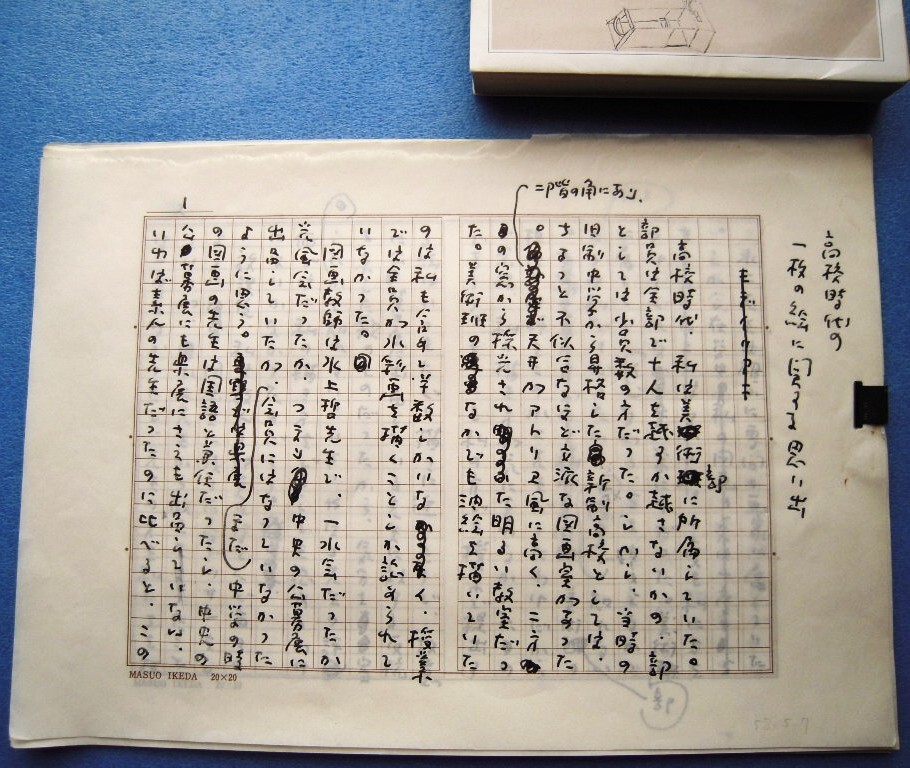 高校時代の
一枚の絵に関する思い出
高校時代、私は美術部に所属していた。
部員は全部で十人を越すか越さないかの、部
としては少員数の方だった。しかし、当時の
旧制中学から昇格した新制高校としては、
ちょっと不似合なほど立派な図画室があった
。二階の角にあり、天井がアトリエ風に高く、二方
の窓から採光された明るい教室だっ
た。美術部のなかでも油絵を描いていた
のは私も含めて少数しかいなく、授業
では全員が水彩画を描くことしか許されて
いなかった。
図画教師は水上 先生で、一水会だったか
光風会だったか、つまり中央の公募展に
出品していたが、会員にはなっていなかった
ように思う。まだ中学の時
の図画の先生は国語と兼任だったし、中央の
公募展にも県展にさえも出品していない、
いわば素人の先生だったのに比べると、この
1
MASUO IKEDA 20×20